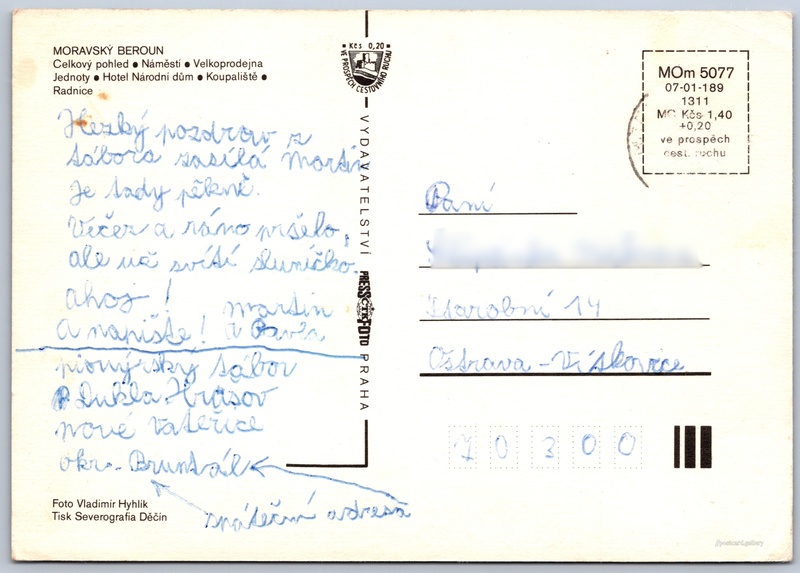 MORAVSKÝ BEROUN
Celkový pohled ● Náměstí ● Velkoprodejna
Jednoty ● Hotel Národní dům ● Koupaliště ●
Radnice
Hezký pozdrav z
tábora zasílá Martin
Je tady pěkně.
Večer a ráno pršelo,
ale už svítí sluníčko.
ahoj! Martin
A napište! a Pavla
pionýrský tábor
Dukla Hrasov
nové
okr. Bruntál
zpáteřní adresa
Foto Vladimír Hyhlík
Tisk Severografia Děčín
Kčs 0,20
VE PROSPĚCH CESTOVNÍHO RUCHU
VYDAVATELSTVÍ PRESSFOTO PRAHA
ČTK
MOm 5077
07-01-189
1311
MC Kčs 1,40
+0,20
ve prospěch
cest. ruchu
Paní
14
Ostrava - Vískovice
70300